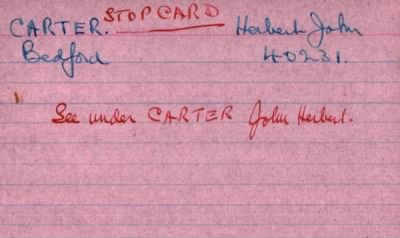 STOP CARD
CARTER. Herbert John
Bedford 40231.
See under CARTER John Herbert.